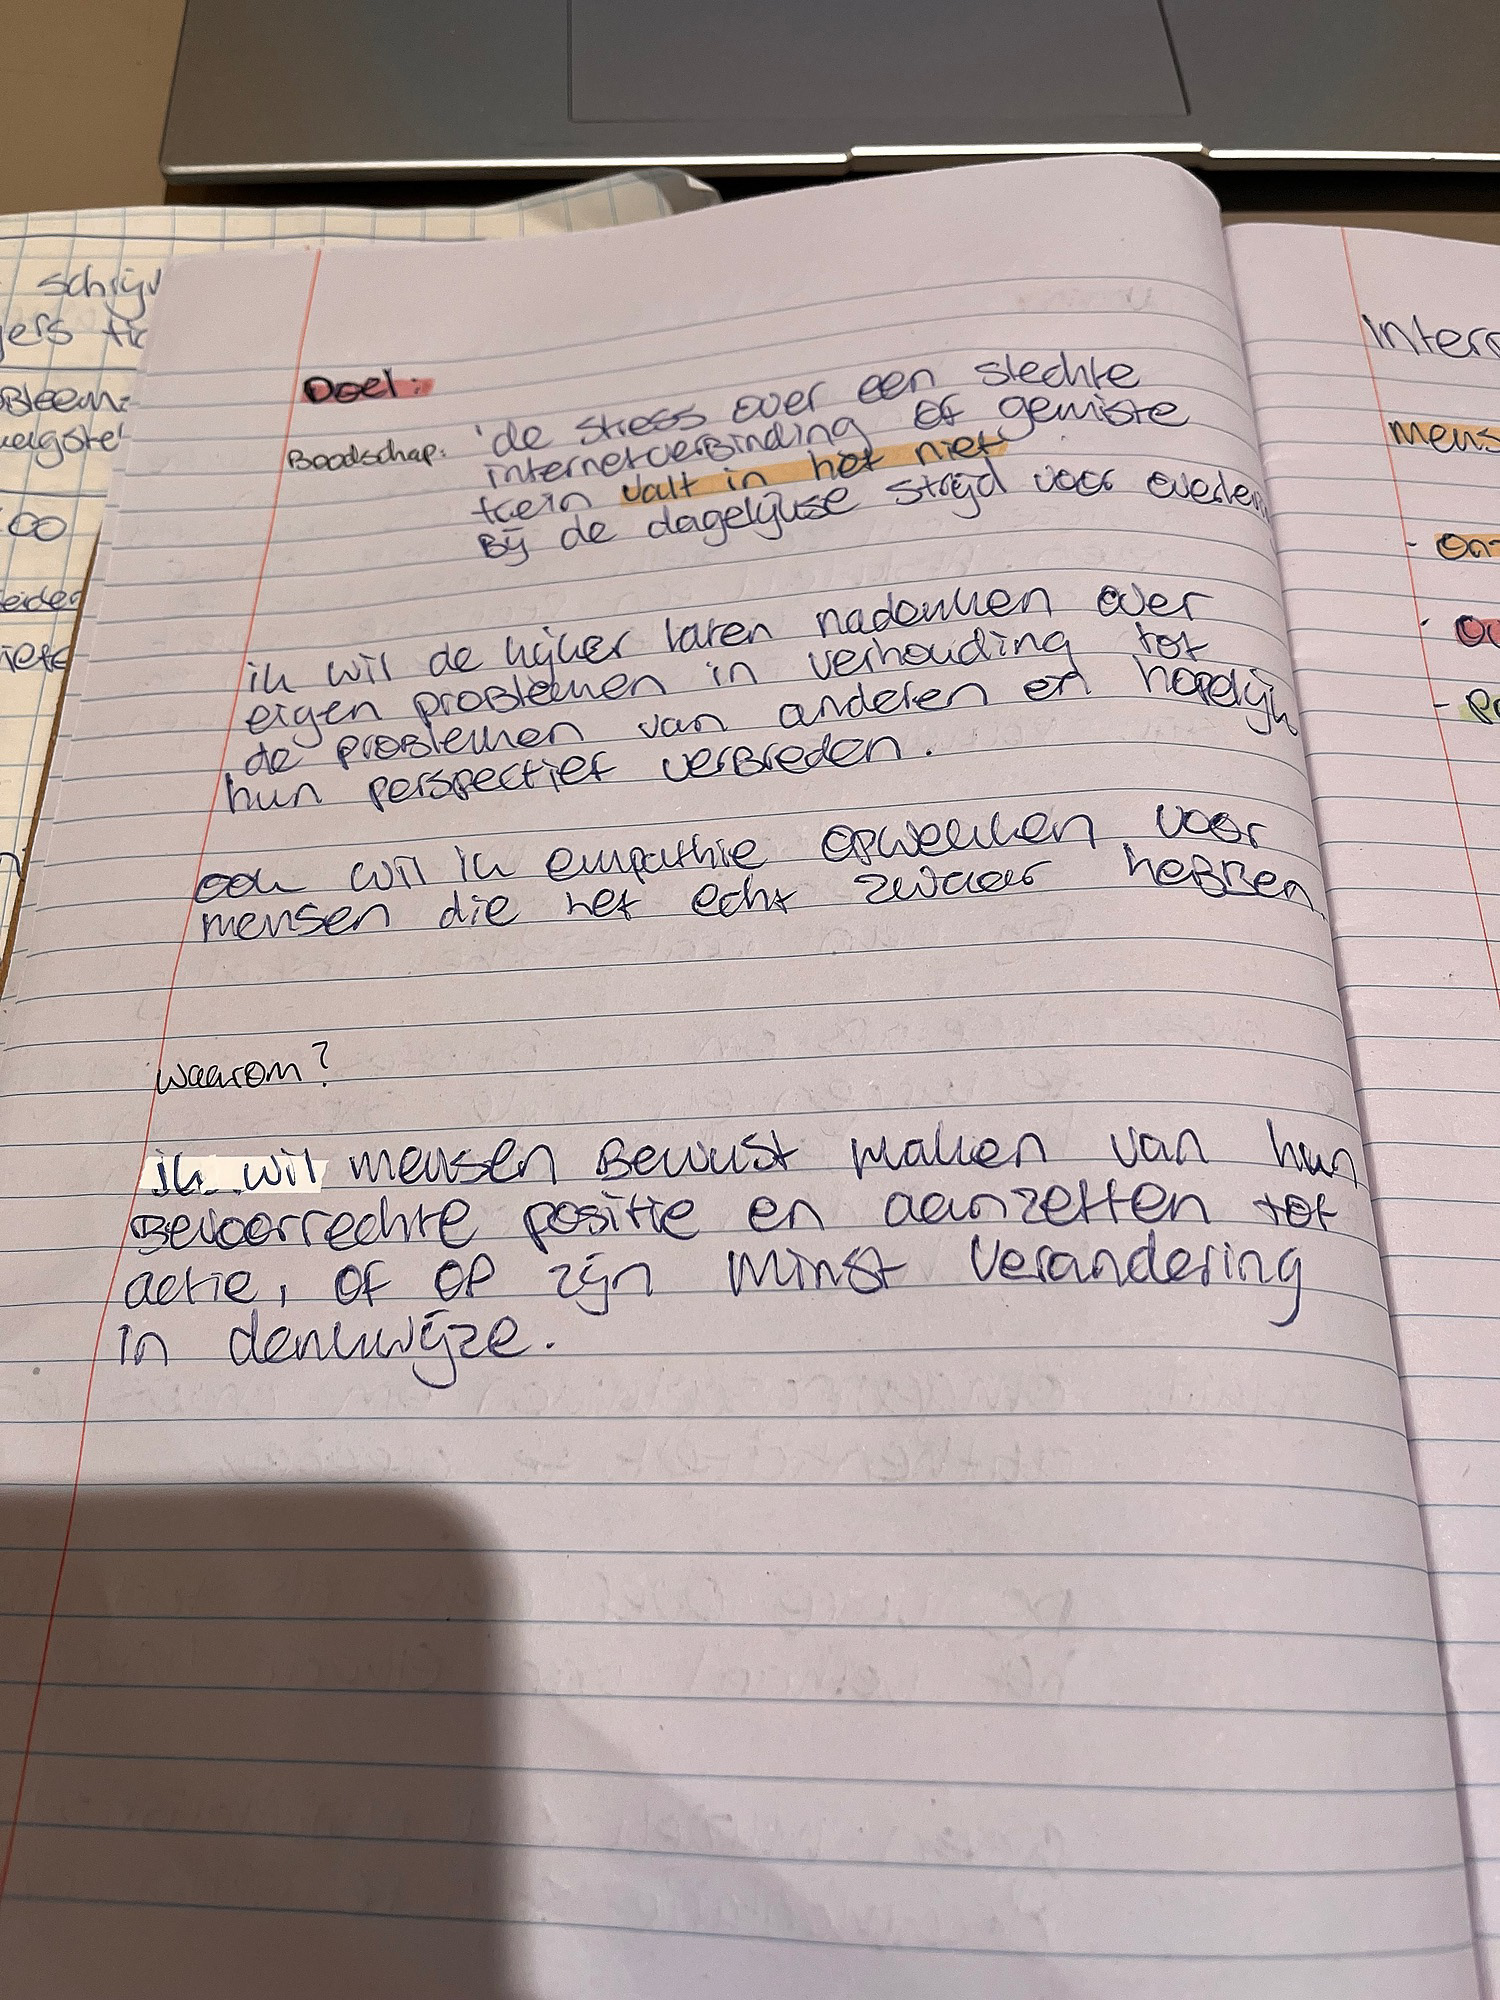 schrijv
Doel:
Boodschap: 'de stress over een slechte
internetverbinding of gemiste
trein valt in het niet
Bij de dagelijkse strijd voor overleven
ik wil de kijker laten nadenken over
eigen problemen in verhouding tot
de problemen van anderen en hopelijk
hun perspectief verbreden.
ook wil ik empathie opwekken voor
mensen die het echt zwaar hebben.
waarom?
ik wil mensen Bewust maken van hun
Bevoorrechte positie en aanzetten tot
actie, of op zijn minst verandering
in denkwijze.
Inter
mens